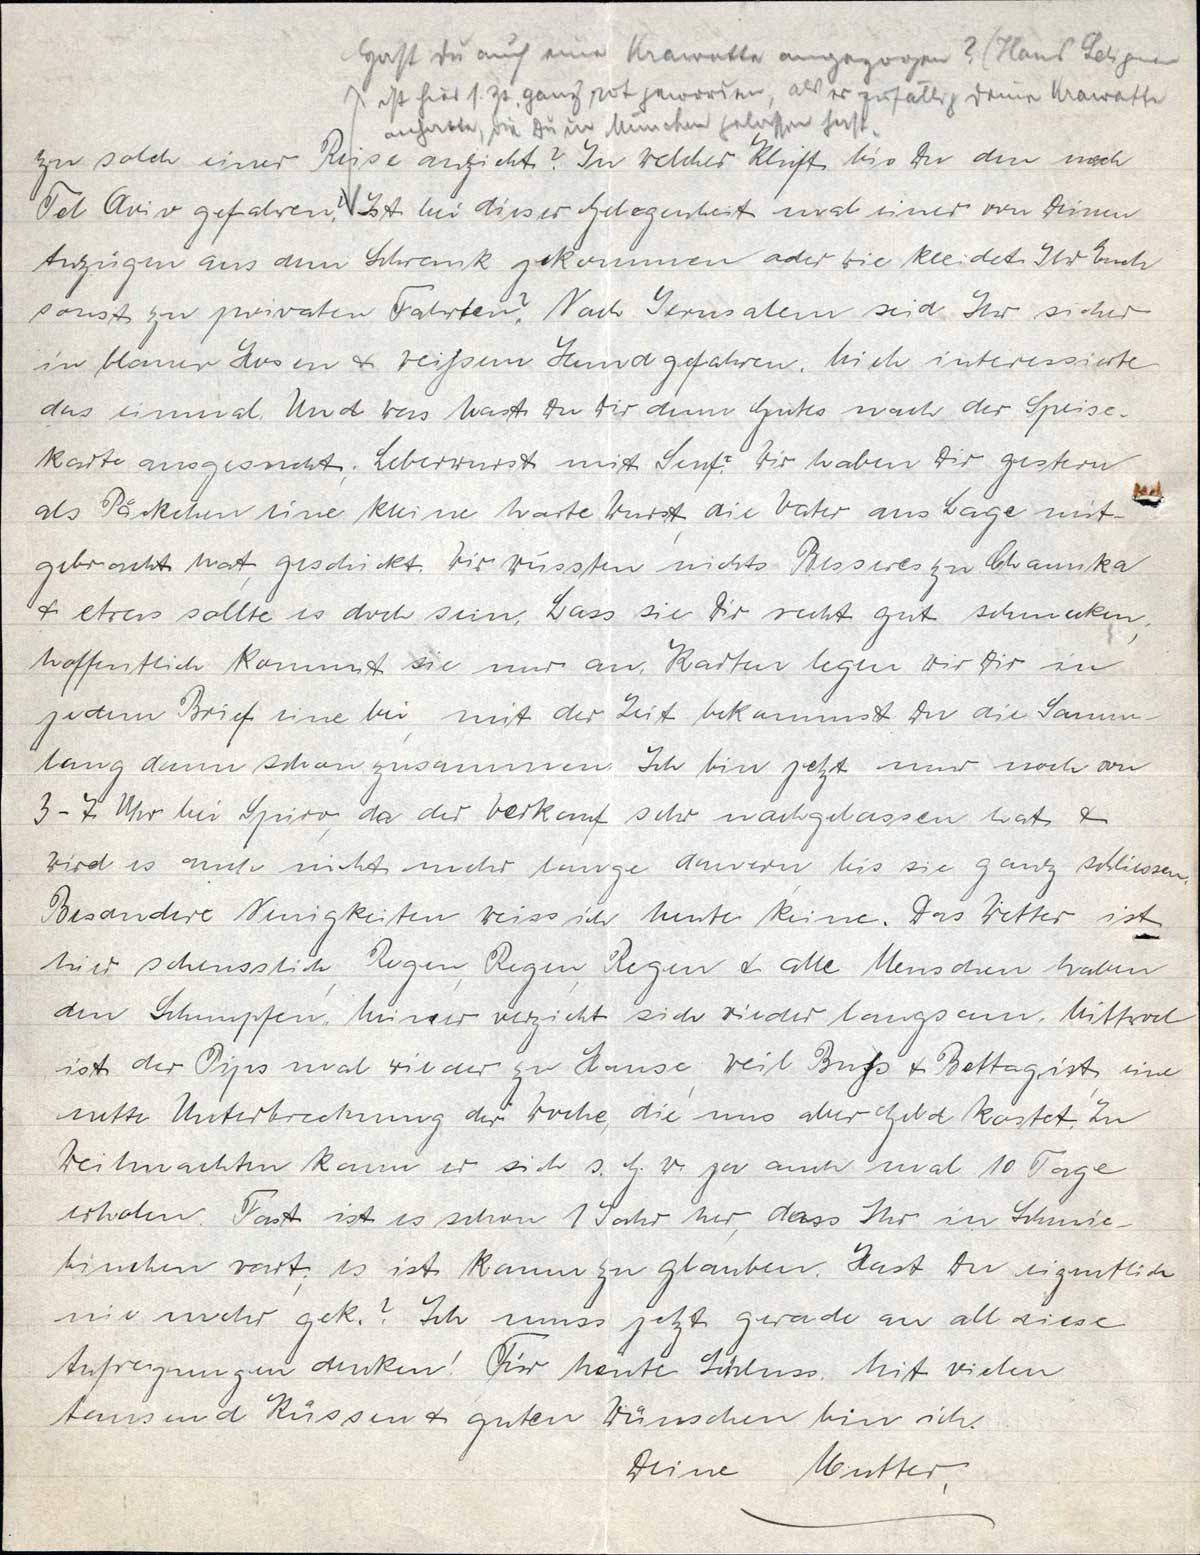 Hast Du auch eine Krawatte angezogen? (Hans
ist hier s. Zt. ganz rot geworden, als er zufällig Deine Krawatte
anhatte, die Du in München gelassen hast.
zu solch einer Reise anzieht? In welcher Kluft bis Du den nach
Tel Aviv gefahren? Ist bei dieser Gelegenheit mal einer von Deinen
Anzügen aus dem Schrank gekommen oder wie kleidet Ihr Euch
sonst zu privaten Fahrten? Nach Jerusalem seid Ihr sicher
in blauer Hosen & weißem Hemd gefahren. Mich interessierte
das einmal. Und was hast Du Dir denn Gutes nach der Speise-
karte ausgesucht, Leberwurst mit Senf? Wir haben Dir gestern
als Päckchen eine kleine harte Wurst, die Vater aus Lage mit-
gebracht hat, geschickt. Wir wüssten nichts Besseres zu Chanuka
& etwas sollte es doch sein. Lass sie Dir recht gut schmecken,
hoffentlich kommt sie nur an. Karten legen wir Dir in
jedem Brief eine bei, mit der Zeit bekommst Du die Samm-
lung dann schon zusammen. Ich bin jetzt nur noch von
3-7 Uhr bei Spiro, da der Verkauf sehr nachgelassen hat &
wird es auch nicht mehr lange dauern, bis sie ganz schliessen.
Besondere Neuigkeiten weiss ich heute keine. Das Wetter ist
hier scheusslich, Regen, Regen, Regen & alle Menschen haben
den Schnupfen. Meiner verzieht sich wieder langsam. Mittwoch
ist der Pips mal wieder zu Hause, weil Buß & Bettag ist, eine
nette Unterbrechnung der Woche, die uns aber Geld kostet. Zu
Weihnachten kann er sich s. G. w. ja auch mal 10 Tage
erholen. Fast ist es schon 1 Jahr her, dass Ihr in Schnie-
binchen wart, es ist kaum zu glauben. Hast Du eigentlich
nie mehr gek.? Ich muss jetzt gerade an all diese
Aufregungen denken! Für heute Schluss. Mit vielen
tausend Küssen & guten Wünschen bin ich.
Deine Mutter.